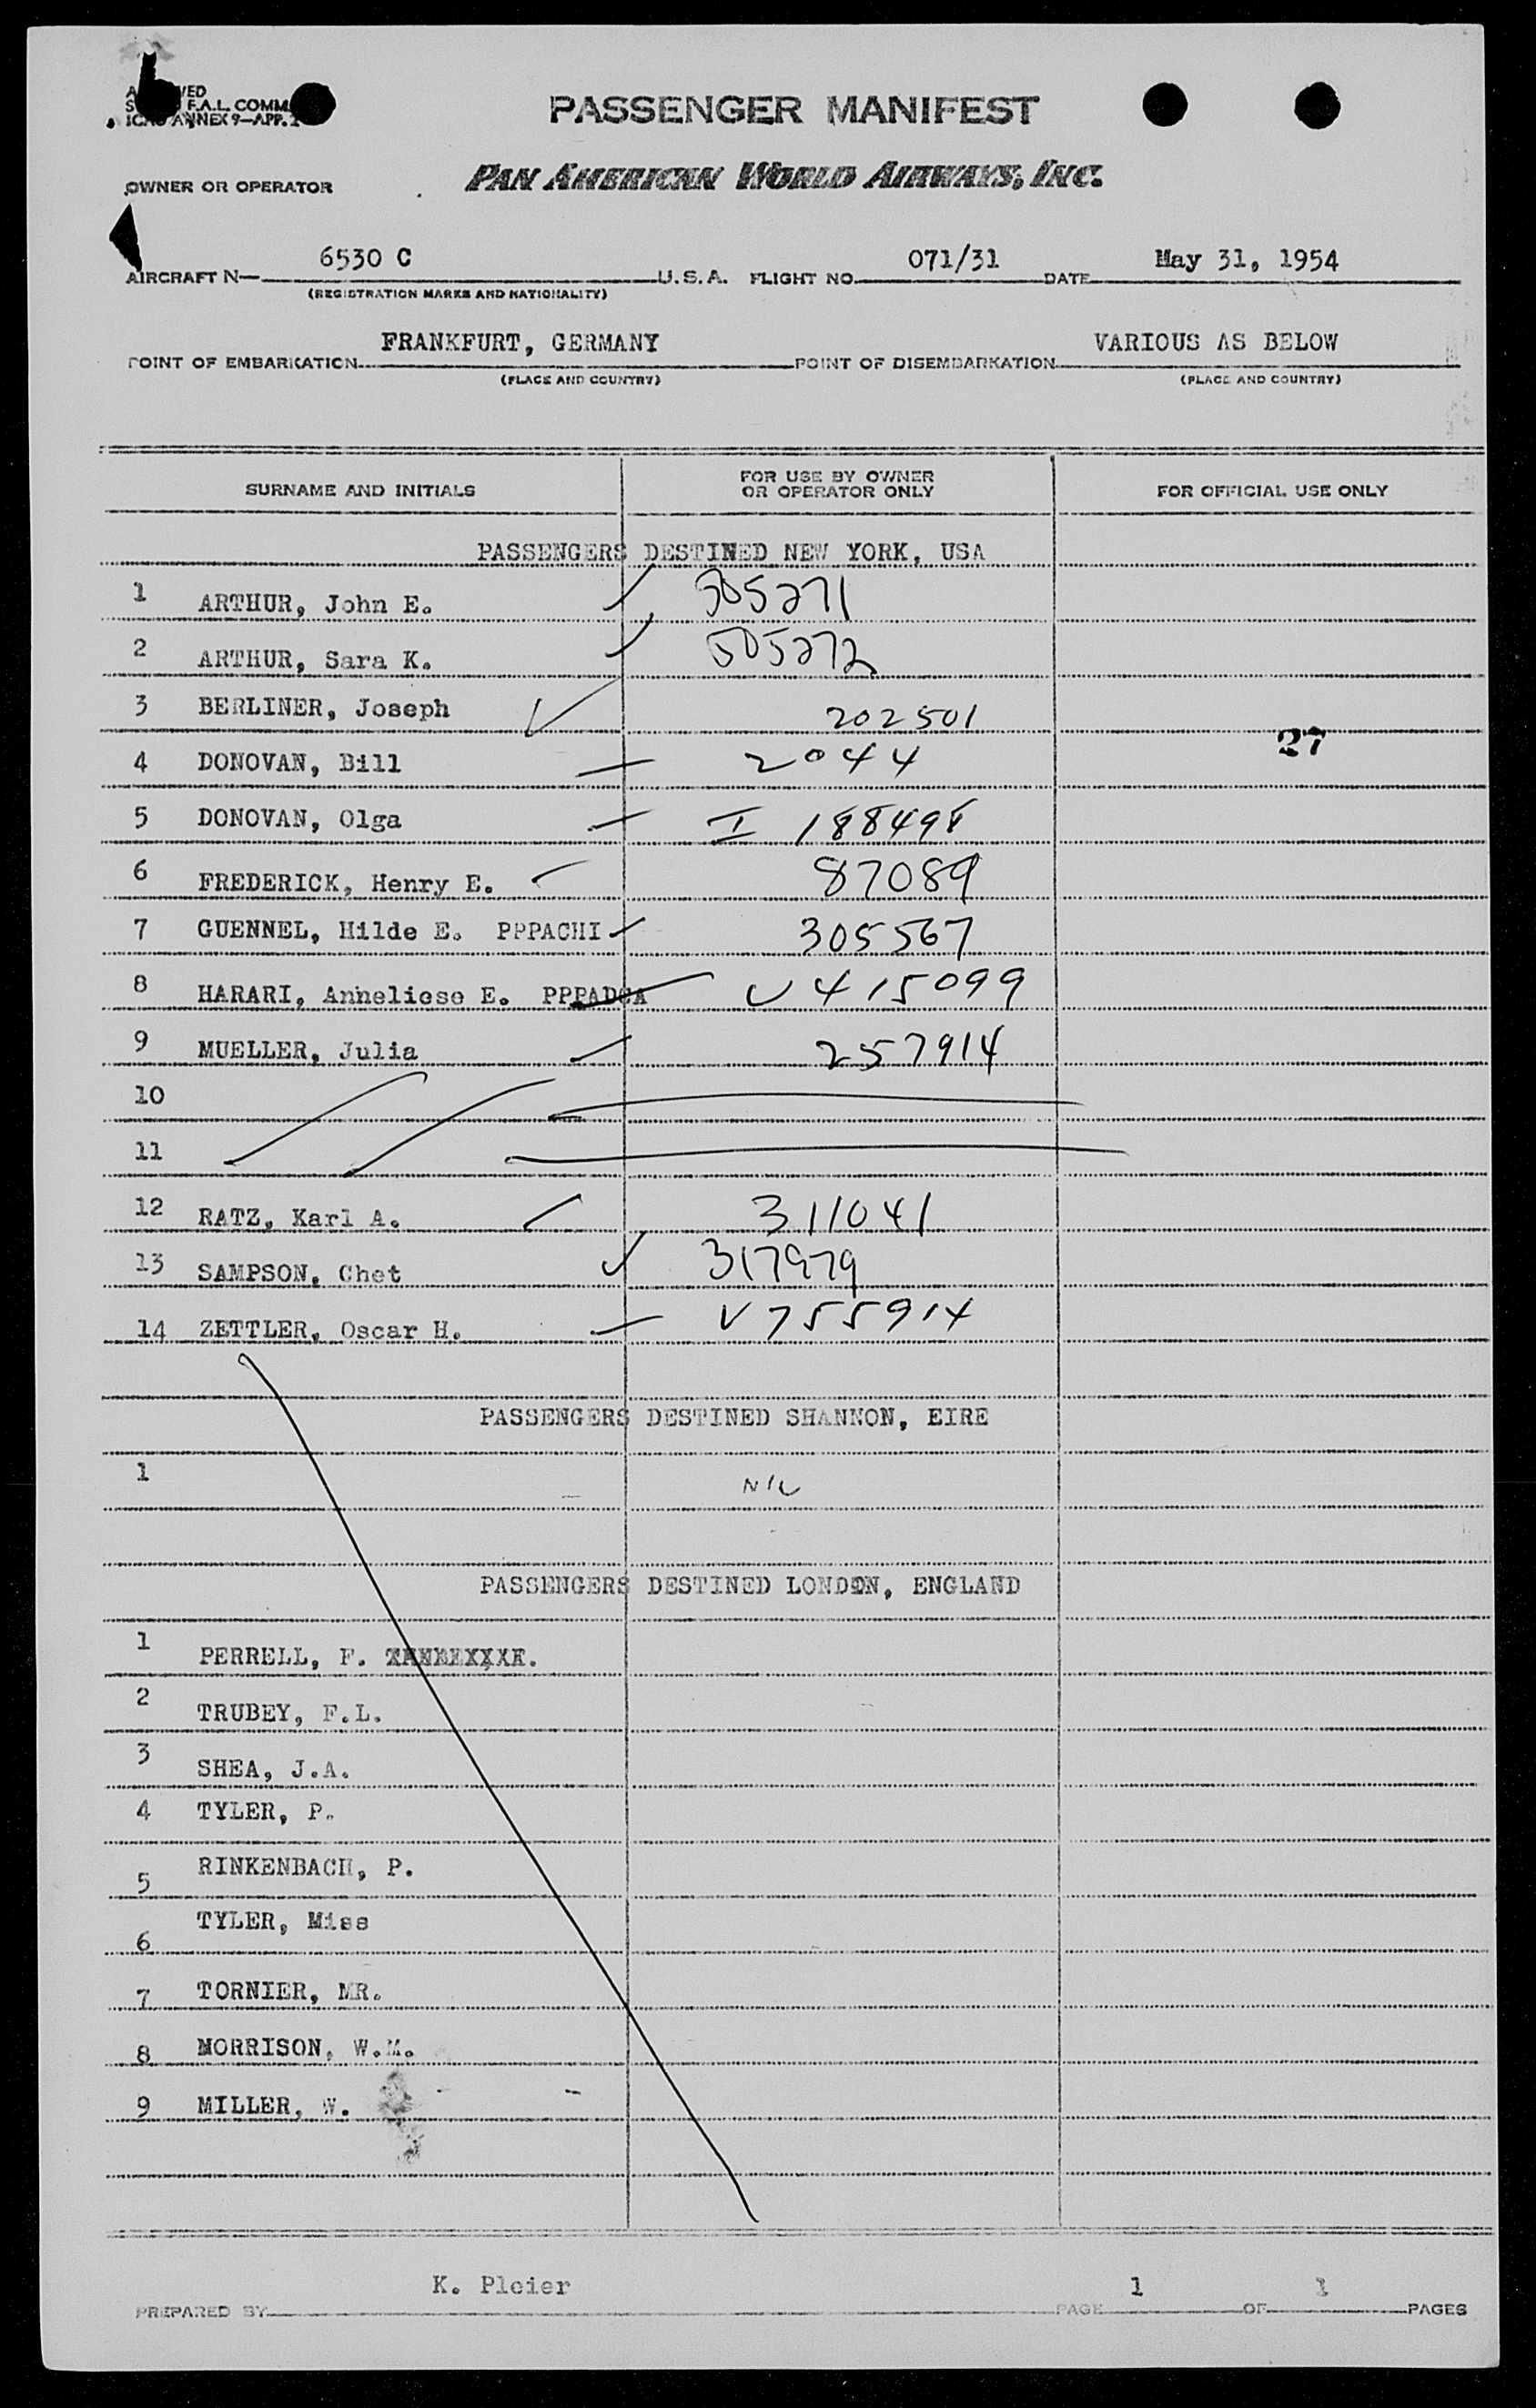 F.A.L. COMM.
ANNEX 9—APP. 2
PASSENGER MANIFEST
OWNER OR OPERATOR
PAN AMERICAN WORLD AIRWAYS, INC.
AIRCRAFT N— 6530 C U.S.A. FLIGHT NO. 071/31 DATE May 31, 1954
(REGISTRATION MARKS AND NATIONALITY)
POINT OF EMBARKATION FRANKFURT, GERMANY POINT OF DISEMBARKATION VARIOUS AS BELOW
(PLACE AND COUNTRY) (PLACE AND COUNTRY)
SURNAME AND INITIALS FOR USE BY OWNER OR OPERATOR ONLY FOR OFFICIAL USE ONLY
PASSENGERS DESTINED NEW YORK, USA
1 ARTHUR, John E. 505271
2 ARTHUR, Sara K. 505272
3 BERLINER, Joseph 202501
27
4 DONOVAN, Bill 2044
5 DONOVAN, Olga I 188498
6 FREDERICK, Henry E. 87089
7 GUENNEL, Hilde E. PPPACHI 305567
8 HARARI, Anneliese E. PPPADCA V415099
9 MUELLER, Julia 257914
10
11
12 RATZ, Karl A. 311041
13 SAMPSON, Chet 317979
14 ZETTLER, Oscar H. V755914
PASSENGERS DESTINED SHANNON, EIRE
1 NIL
PASSENGERS DESTINED LONDON, ENGLAND
1 PERRELL, F.
2 TRUBEY, F.L.
3 SHEA, J.A.
4 TYLER, P.
5 RINKENBACH, P.
6 TYLER, Miss
7 TORNIER, MR.
8 MORRISON, W.M.
9 MILLER, W.
PREPARED BY K. Pleier PAGE 1 OF 1 PAGES